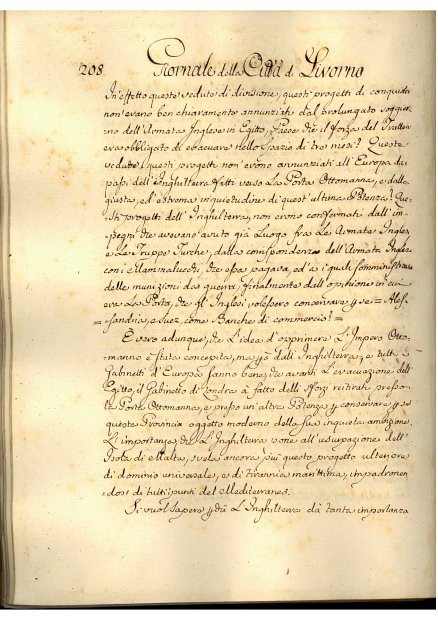 208 Giornale della Città di Livorno
In' effetto queste vedute di divisione, questi progetti di conquista
non' erano ben chiaramente annunziati dal prolungato soggior
no dell' Armata Inglese in Egitto, Paese che il forza del Trattato
era obbligato di evacuare nello Spazio di tre mesi? Queste
vedute, questi progetti non' erono annunziati all' Europa da
passi dell' Inghilterra fatti verso La Porta Ottomanna, e dalla
giusta, ed' estrema inquietudine di quest' ultima Potenza! Que
sti progetti dell' Inghilterra, non erono confermati dall' im
pegni che avevano' avuto già Luogo fra Le Armate Inglesi
e Le Truppe Turche, dalla corrispondenza dell' Armata Inglese
con i Mammalucchi, che essa pagava, ed' a i quali somministrava
delle munizioni da guerra, finalmente dall' opinione in cui
era La Porta, che gl' Inglesi volessero conservare per se = Ales
= sandria, e Suez, come Banche di commercio! =
È vero adunque, che L'idea d'opprimere L'Impero Otto
manno è stata concepita, ma già dall' Inghilterra, e tutti i
Gabinetti d' Europa sanno bene, che avanti L'evacuazione dell'
Egitto, il Gabinetto di Londra à fatto delli sforzi reitirati presso
la Porta Ottomanna, e presso un' altra Potenza per conservare per se
questa Provincia oggetto moderno della sua inquieta ambizione.
L'importanza, che L'Inghilterra pone all' usurpazione dell'
Isola di Malta, svela ancora più questo progetto ulteriore
di dominio universale, e di tirannia marittima, impadronen
dosi di tutti i punti del Mediterraneo.
Si vuol sapere perchè L'Inghilterra dà tanta importanza